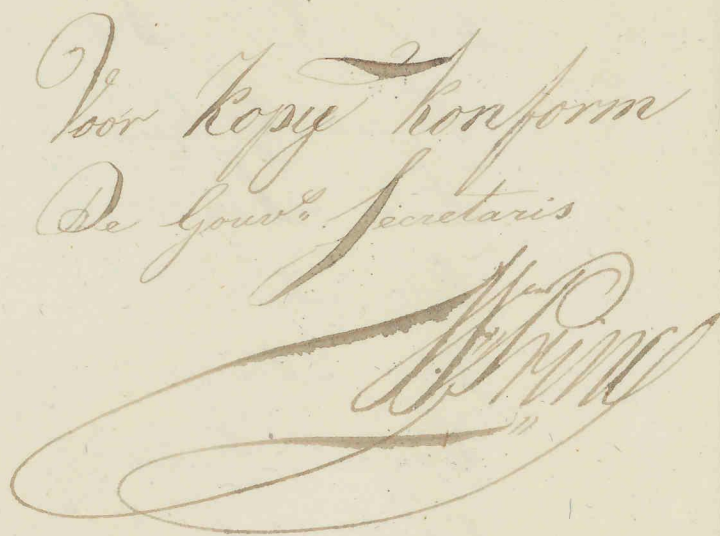 Voor Kopij Konform
De Gouvts. Secretaris